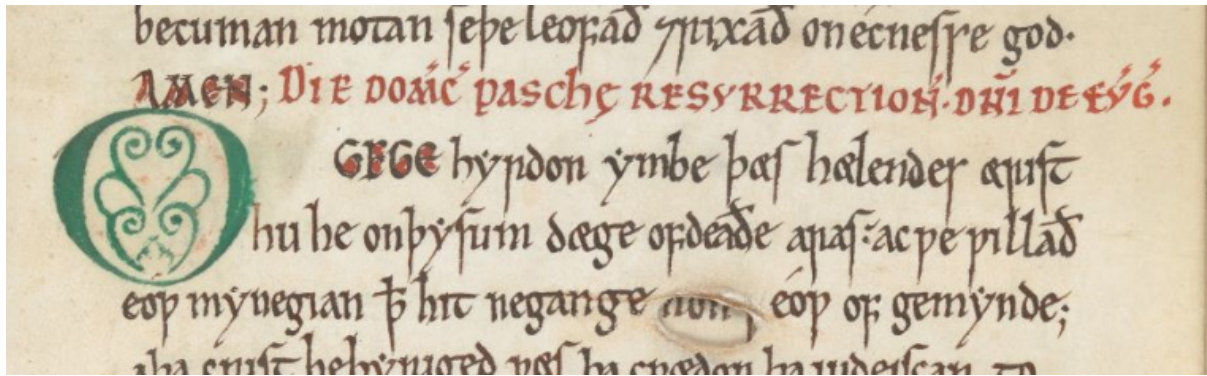 becuman motan seþe leofað ⁊ rixað on ecnesse god.
AMEN; DIE DOMIC PASCHĘ RESVRRECTION. DN̄I DE EVG.
OFGE GE hyrdon ymbe þæs hælendes ærist
hu he on þysum dæge of deaðe aras: ac ƿe ƿillað
eoƿ mynegian ꝥ hit ne gange eoƿ of gemynde;